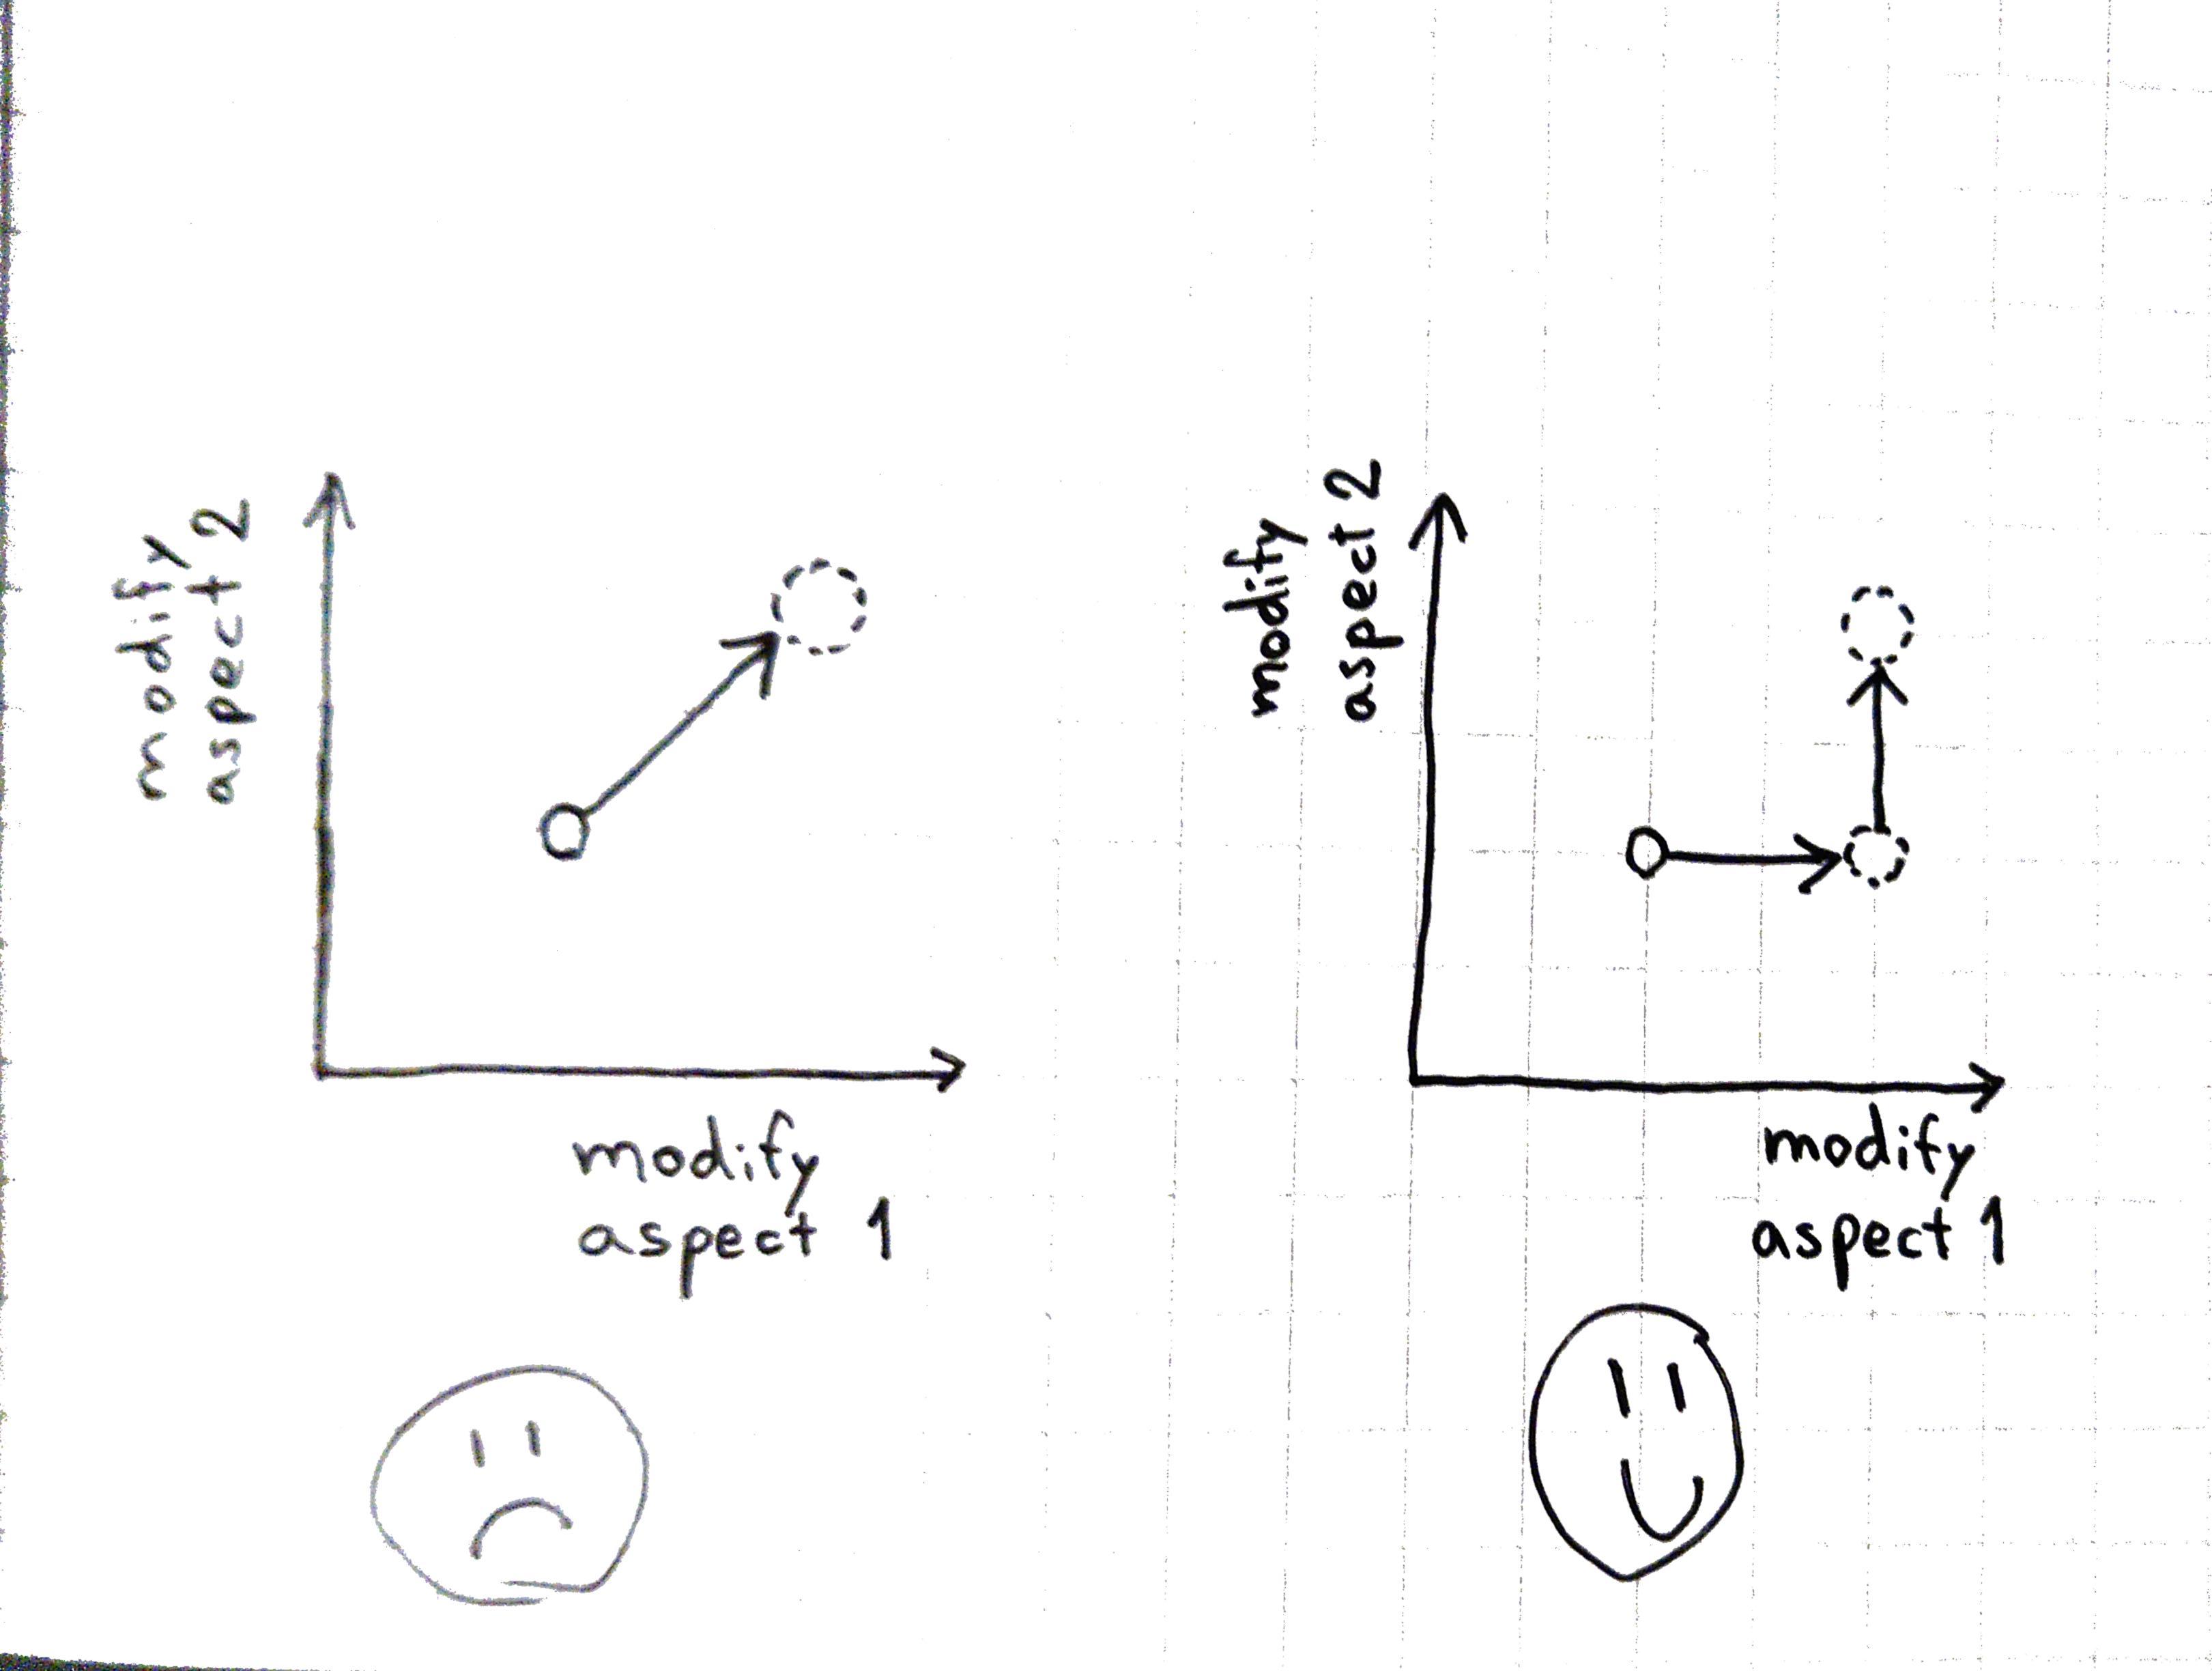 modify
aspect 2
modify
aspect 1
modify
aspect 2
modify
aspect 1